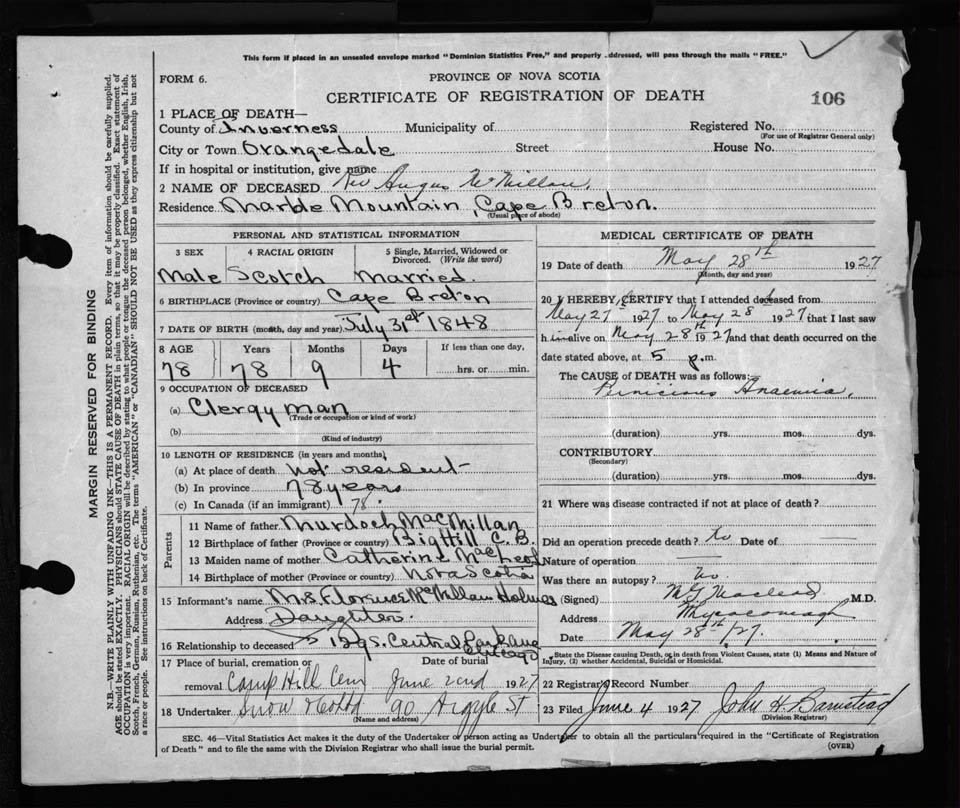 This form if placed in an unsealed envelope marked "Dominion Statistics Free," and properly addressed, will pass through the mails "FREE."
FORM 6.
PROVINCE OF NOVA SCOTIA
CERTIFICATE OF REGISTRATION OF DEATH
106
1 PLACE OF DEATH—
County of Inverness Municipality of Registered No.
(For use of Registrar General only)
City or Town Orangedale Street House No.
If in hospital or institution, give name
2 NAME OF DECEASED Rev Angus McMillan.
Residence Marble Mountain, Cape Breton.
(Usual place of abode)
PERSONAL AND STATISTICAL INFORMATION
3 SEX 4 RACIAL ORIGIN 5 Single, Married, Widowed or Divorced. (Write the word)
Male Scotch Married.
6 BIRTHPLACE (Province or country) Cape Breton
7 DATE OF BIRTH (month, day and year) July 31st 1848
8 AGE Years Months Days If less than one day,
78 78 9 4 hrs. or min.
9 OCCUPATION OF DECEASED
(a) Clergyman
(Trade or occupation or kind of work)
(b)
(Kind of industry)
10 LENGTH OF RESIDENCE (in years and months)
(a) At place of death not resident
(b) In province 78 years
(c) In Canada (if an immigrant) 78.
Parents
11 Name of father Murdoch MacMillan
12 Birthplace of father (Province or country) Big Hill C.B.
13 Maiden name of mother Catherine MacLeod
14 Birthplace of mother (Province or country) Nova Scotia
15 Informant's name Mrs. Florence McMillan Holmes
Address Daughter
16 Relationship to deceased 129 S. Central Park Ave Chicago
17 Place of burial, cremation or Date of burial
removal Camp Hill Cem June 2nd 1927
18 Undertaker Snow 90 Argyle St
(Name and address)
MEDICAL CERTIFICATE OF DEATH
19 Date of death May 28th 1927
(Month, day and year)
20 I HEREBY CERTIFY that I attended deceased from
May 27 1927 to May 28 1927 that I last saw
h im alive on May 28th 1927 and that death occurred on the
date stated above, at 5 p.m.
The CAUSE of DEATH was as follows:
Pernicious Anaemia.
(duration) yrs. mos. dys.
CONTRIBUTORY
(Secondary)
(duration) yrs. mos. dys.
21 Where was disease contracted if not at place of death?
Did an operation precede death? No Date of
Nature of operation
Was there an autopsy? No.
(Signed) M.G. Macleod M.D.
Address Whycocomagh
Date May 28th/27.
State the Disease causing Death, or in death from Violent Causes, state (1) Means and Nature of Injury, (2) whether Accidental, Suicidal or Homicidal.
22 Registrar's Record Number
23 Filed June 4 1927 John H. Barnstead
(Division Registrar)
SEC. 46—Vital Statistics Act makes it the duty of the Undertaker or person acting as Undertaker to obtain all the particulars required in the "Certificate of Registration
of Death" and to file the same with the Division Registrar who shall issue the burial permit.
(OVER)
MARGIN RESERVED FOR BINDING
N.B.—WRITE PLAINLY WITH UNFADING INK—THIS IS A PERMANENT RECORD. Every item of information should be carefully supplied.
AGE should be stated EXACTLY. PHYSICIANS should STATE CAUSE OF DEATH in plain terms, so that it may be properly classified. Exact statement of
OCCUPATION is very important. RACIAL ORIGIN will be described by stating to what people or tongue the deceased person belonged, whether English, Irish,
Scotch, French, German, Russian, Ruthenian, etc. The terms "AMERICAN" or "CANADIAN" SHOULD NOT BE USED as they express citizenship but not
a race or people. See instructions on back of Certificate.